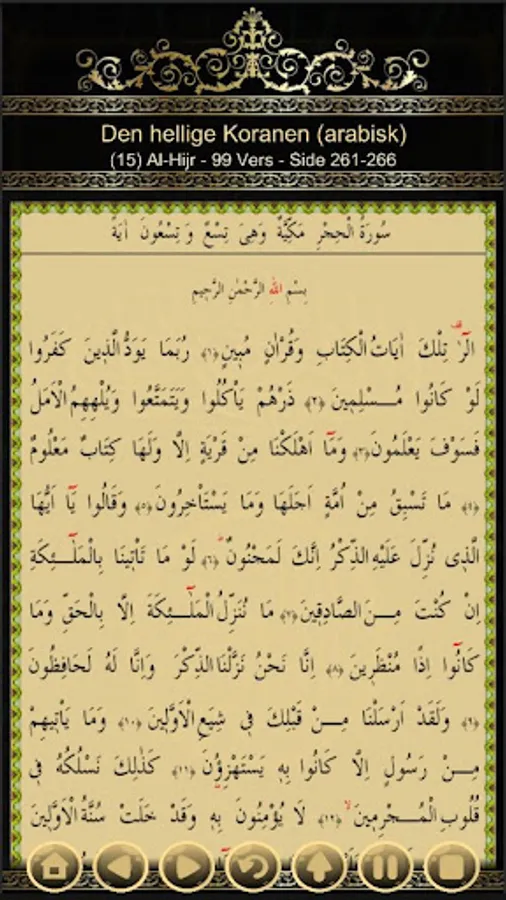 Den hellige Koranen (arabisk)
(15) Al-Hijr - 99 Vers - Side 261-266
سُورَةُ الْحِجْرِ مَكِّيَّةٌ وَهِىَ تِسْعٌ وَ تِسْعُونَ اٰيَةً
بِسْمِ اللهِ الرَّحْمٰنِ الرَّحِيمِ
الٓرٰ تِلْكَ اٰيَاتُ الْكِتَابِ وَقُرْاٰنٍ مُبِينٍ ﴿١﴾ رُبَمَا يَوَدُّ الَّذِينَ كَفَرُوا
لَوْ كَانُوا مُسْلِمِينَ ﴿٢﴾ ذَرْهُمْ يَاْكُلُوا وَيَتَمَتَّعُوا وَيُلْهِهِمُ الْاَمَلُ
فَسَوْفَ يَعْلَمُونَ ﴿٣﴾ وَمَٓا اَهْلَكْنَا مِنْ قَرْيَةٍ اِلَّا وَلَهَا كِتَابٌ مَعْلُومٌ
﴿٤﴾ مَا تَسْبِقُ مِنْ اُمَّةٍ اَجَلَهَا وَمَا يَسْتَاْخِرُونَ ﴿٥﴾ وَقَالُوا يَٓا اَيُّهَا
الَّذِى نُزِّلَ عَلَيْهِ الذِّكْرُ اِنَّكَ لَمَجْنُونٌ ﴿٦﴾ لَوْ مَا تَاْتِينَا بِالْمَلٰٓئِكَةِ
اِنْ كُنْتَ مِنَ الصَّادِقِينَ ﴿٧﴾ مَا نُنَزِّلُ الْمَلٰٓئِكَةَ اِلَّا بِالْحَقِّ وَمَا
كَانُٓوا اِذًا مُنْظَرِينَ ﴿٨﴾ اِنَّا نَحْنُ نَزَّلْنَا الذِّكْرَ وَاِنَّا لَهُ لَحَافِظُونَ
﴿٩﴾ وَلَقَدْ اَرْسَلْنَا مِنْ قَبْلِكَ فِى شِيَعِ الْاَوَّلِينَ ﴿١٠﴾ وَمَا يَاْتِيهِمْ
مِنْ رَسُولٍ اِلَّا كَانُوا بِهِ يَسْتَهْزِؤُنَ ﴿١١﴾ كَذٰلِكَ نَسْلُكُهُ فِى
قُلُوبِ الْمُجْرِمِينَ ﴿١٢﴾ لَا يُؤْمِنُونَ بِهِ وَقَدْ خَلَتْ سُنَّةُ الْاَوَّلِينَ